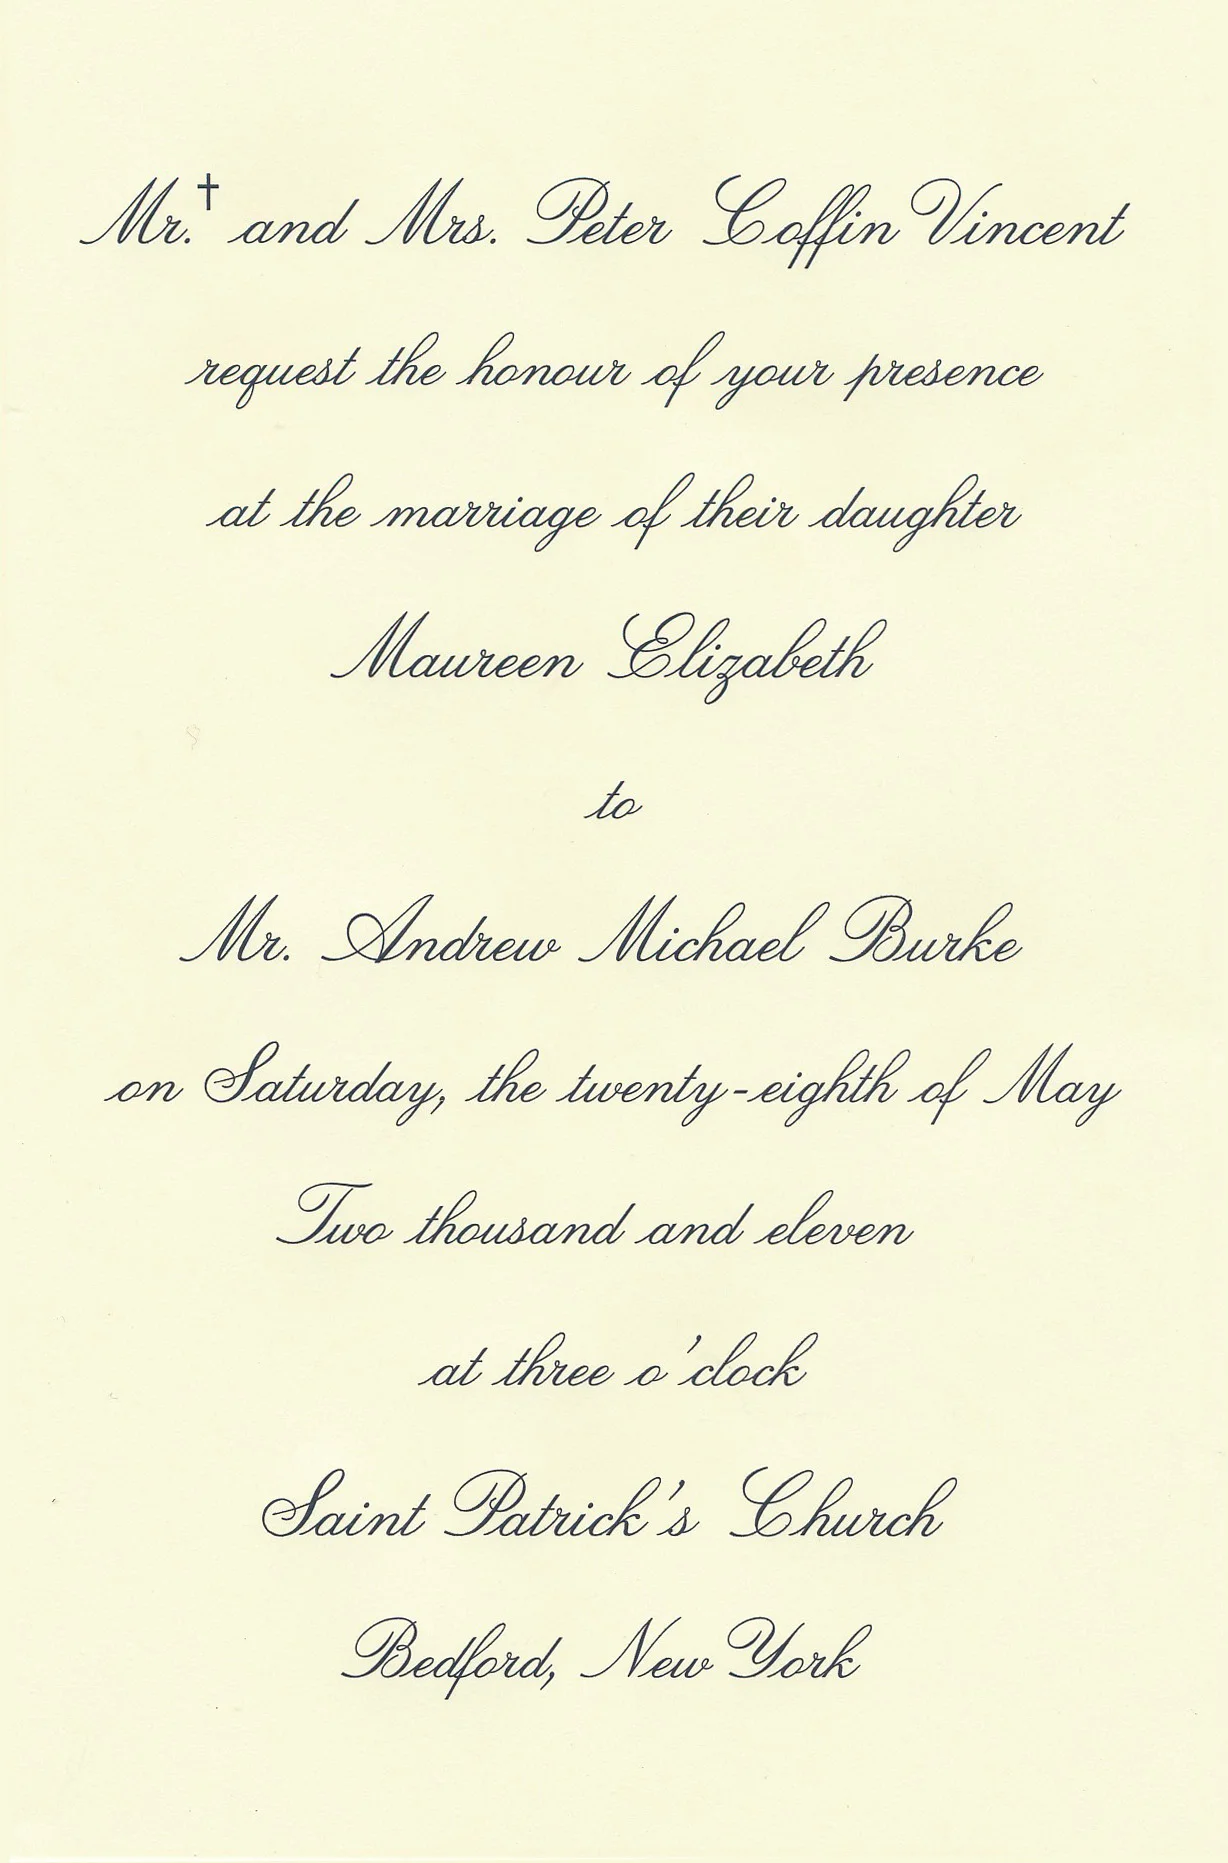 Mr.† and Mrs. Peter Coffin Vincent
request the honour of your presence
at the marriage of their daughter
Maureen Elizabeth
to
Mr. Andrew Michael Burke
on Saturday, the twenty-eighth of May
Two thousand and eleven
at three o'clock
Saint Patrick's Church
Bedford, New York